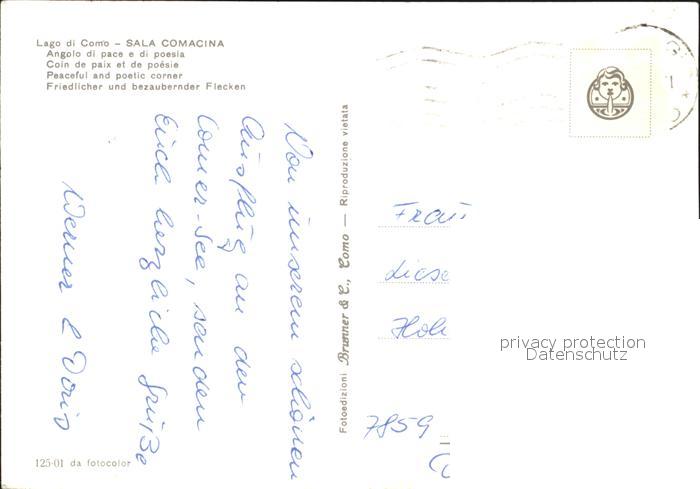 Lago di Como – SALA COMACINA
Angolo di pace e di poesia
Coin de paix et de poésie
Peaceful and poetic corner
Friedlicher und bezaubernder Flecken
Von unserem schönen
Ausflug an den
Comer-See, senden
Euch herzliche Grüße
Werner & Doris
Fotoedizioni Brunner & C., Como — Riproduzione vietata
Frau
Liese
Hohe
7859
privacy protection
Datenschutz
125-01 da fotocolor